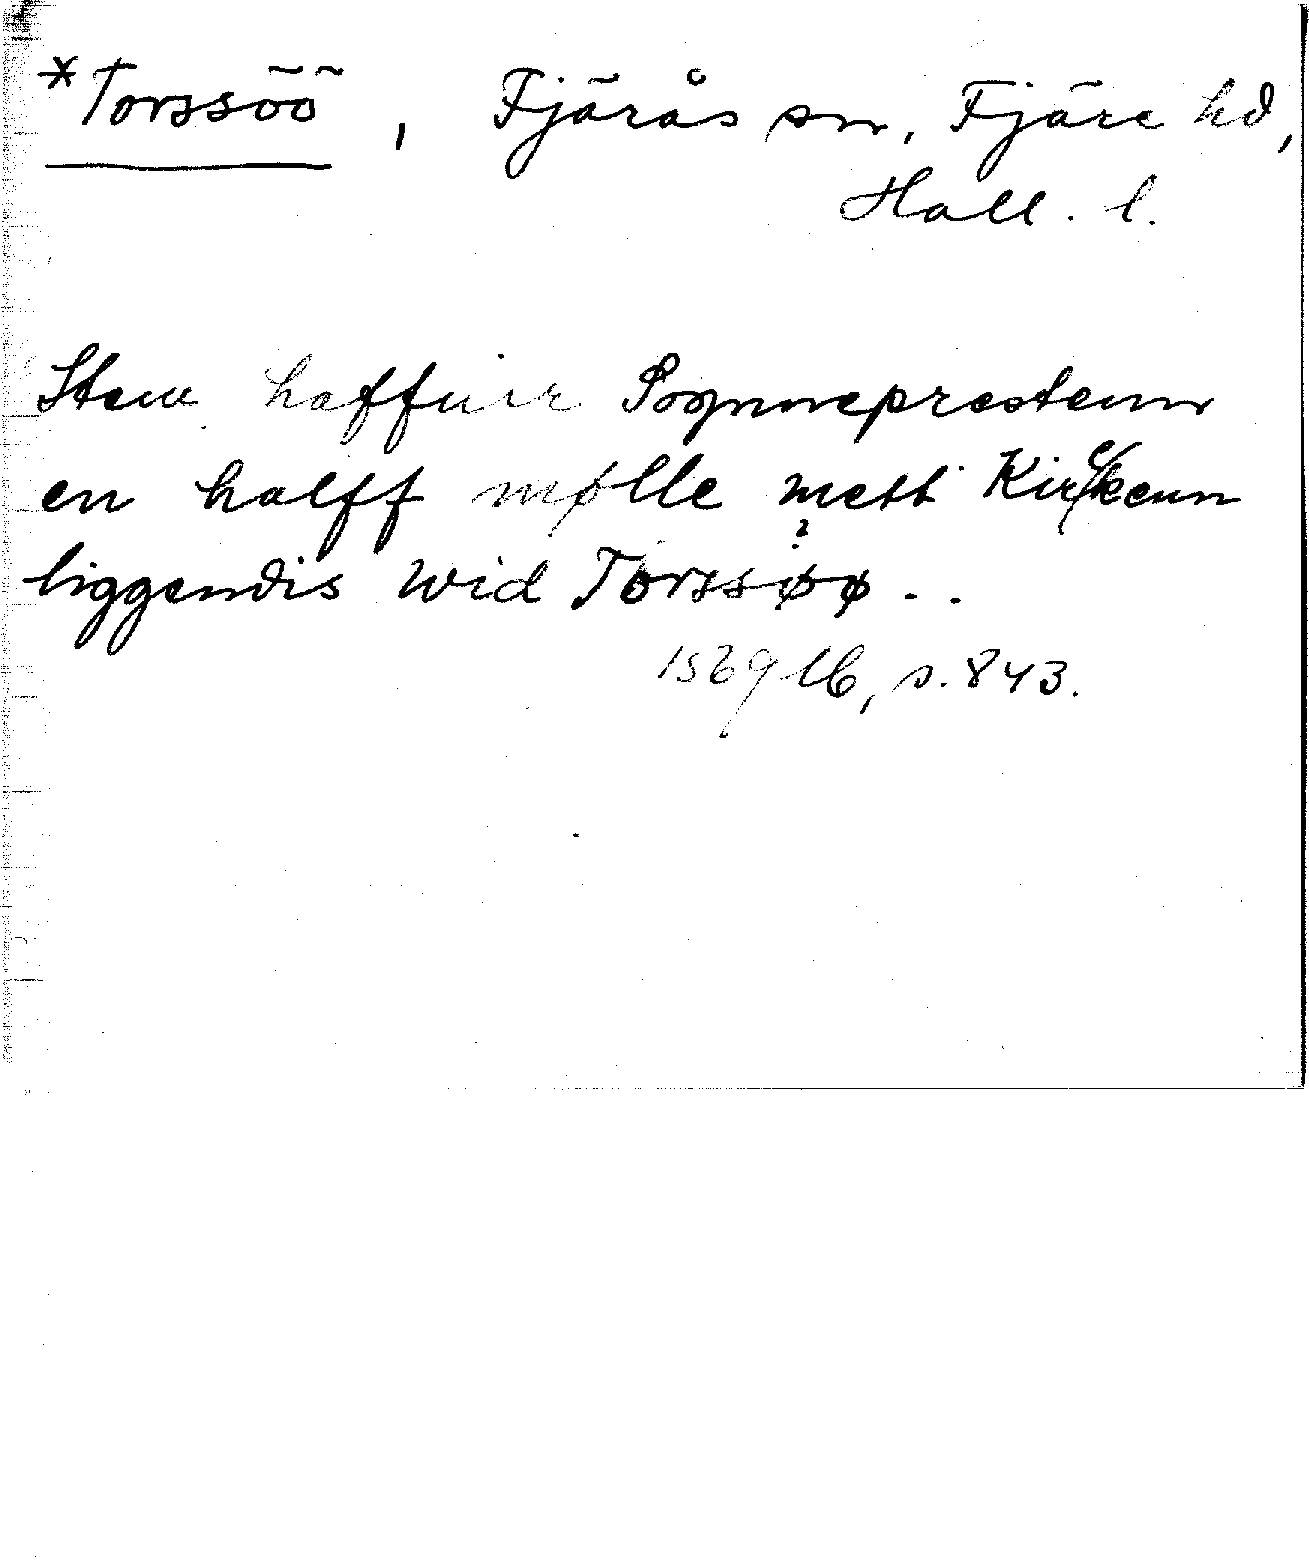 *Torssöö, Fjärås sn, Fjäre hd,
Hall. l.
Item haffuir Sogneprestenn
en halff mølle mett Kirckenn
liggendis wid Torssøø . .
?
1569 Ub, s. 843.